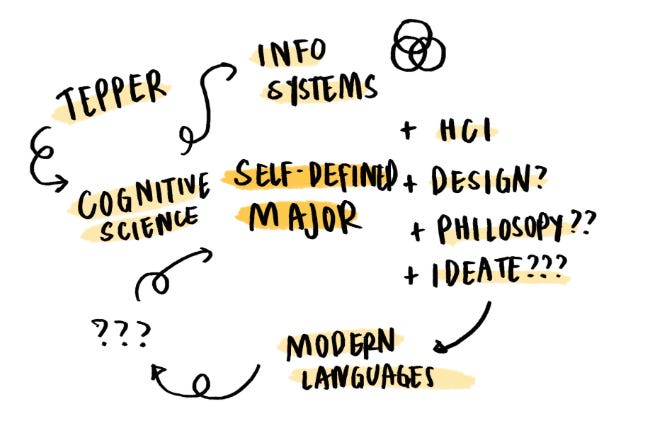 TEPPER
INFO
SYSTEMS
COGNITIVE
SCIENCE
SELF-DEFINED
MAJOR
+ HCI
+ DESIGN?
+ PHILOSOPY??
+ IDEATE???
MODERN
LANGUAGES
???